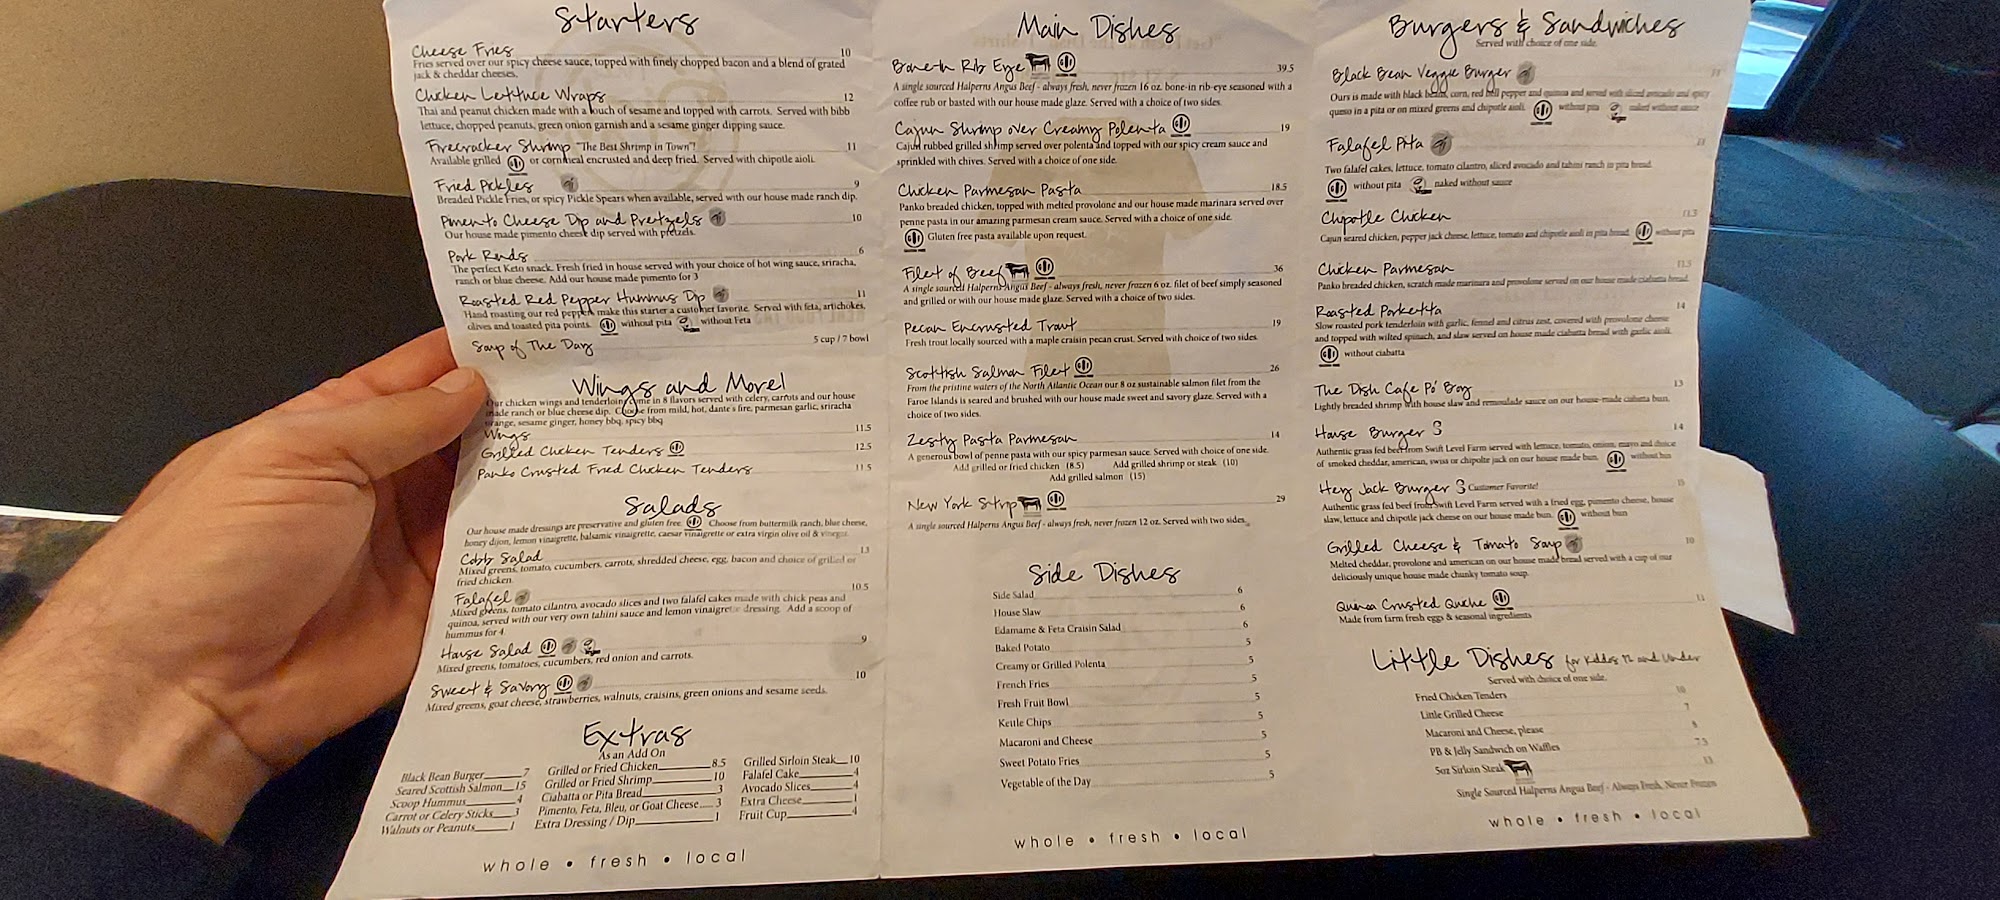 Starters
Cheese Fries 10
Fries served over our spicy cheese sauce, topped with finely chopped bacon and a blend of grated
jack & cheddar cheeses.
Chicken Lettuce Wraps 12
Thai and peanut chicken made with a touch of sesame and topped with carrots. Served with bibb
lettuce, chopped peanuts, green onion garnish and a sesame ginger dipping sauce.
Firecracker Shrimp "The Best Shrimp in Town"! 11
Available grilled or cornmeal encrusted and deep fried. Served with chipotle aioli.
Fried Pickles 9
Breaded Pickle Fries, or spicy Pickle Spears when available, served with our house made ranch dip.
Pimento Cheese Dip and Pretzels 10
Our house made pimento cheese dip served with pretzels.
Pork Rinds 6
The perfect Keto snack. Fresh fried in house served with your choice of hot wing sauce, sriracha,
ranch or blue cheese. Add our house made pimento for 3
Roasted Red Pepper Hummus Dip 11
Hand roasting our red peppers make this starter a customer favorite. Served with feta, artichokes,
olives and toasted pita points. without pita without Feta
Soup of The Day 5 cup / 7 bowl
Wings and More!
Our chicken wings and tenderloins come in 8 flavors served with celery, carrots and our house
made ranch or blue cheese dip. Choose from mild, hot, dante's fire, parmesan garlic, sriracha
orange, sesame ginger, honey bbq, spicy bbq
Wings 11.5
Grilled Chicken Tenders 12.5
Panko Crusted Fried Chicken Tenders 11.5
Salads
Our house made dressings are preservative and gluten free. Choose from buttermilk ranch, blue cheese,
honey dijon, lemon vinaigrette, balsamic vinaigrette, caesar vinaigrette or extra virgin olive oil & vinegar.
Cobb Salad 13
Mixed greens, tomato, cucumbers, carrots, shredded cheese, egg, bacon and choice of grilled or
fried chicken.
Falafel 10.5
Mixed greens, tomato cilantro, avocado slices and two falafel cakes made with chick peas and
quinoa, served with our very own tahini sauce and lemon vinaigrette dressing. Add a scoop of
hummus for 4
House Salad 9
Mixed greens, tomatoes, cucumbers, red onion and carrots.
Sweet & Savory 10
Mixed greens, goat cheese, strawberries, walnuts, craisins, green onions and sesame seeds.
Extras
As an Add On
Black Bean Burger 7
Seared Scottish Salmon 15
Scoop Hummus 4
Carrot or Celery Sticks 3
Walnuts or Peanuts 1
Grilled or Fried Chicken 8.5
Grilled or Fried Shrimp 10
Ciabatta or Pita Bread 3
Pimento, Feta, Bleu, or Goat Cheese 3
Extra Dressing / Dip 1
Grilled Sirloin Steak 10
Falafel Cake 4
Avocado Slices 4
Extra Cheese 1
Fruit Cup 4
whole • fresh • local
Main Dishes
Bone-In Rib Eye 39.5
A single sourced Halperns Angus Beef - always fresh, never frozen 16 oz. bone-in rib-eye seasoned with a
coffee rub or basted with our house made glaze. Served with a choice of two sides.
Cajun Shrimp over Creamy Polenta 19
Cajun rubbed grilled shrimp served over polenta and topped with our spicy cream sauce and
sprinkled with chives. Served with a choice of one side.
Chicken Parmesan Pasta 18.5
Panko breaded chicken, topped with melted provolone and our house made marinara served over
penne pasta in our amazing parmesan cream sauce. Served with a choice of one side.
Gluten free pasta available upon request.
Filet of Beef 36
A single sourced Halperns Angus Beef - always fresh, never frozen 6 oz. filet of beef simply seasoned
and grilled or with our house made glaze. Served with a choice of two sides.
Pecan Encrusted Trout 19
Fresh trout locally sourced with a maple craisin pecan crust. Served with choice of two sides.
Scottish Salmon Filet 26
From the pristine waters of the North Atlantic Ocean our 8 oz sustainable salmon filet from the
Faroe Islands is seared and brushed with our house made sweet and savory glaze. Served with a
choice of two sides.
Zesty Pasta Parmesan 14
A generous bowl of penne pasta with our spicy parmesan sauce. Served with choice of one side.
Add grilled or fried chicken (8.5) Add grilled shrimp or steak (10)
Add grilled salmon (15)
New York Strip 29
A single sourced Halperns Angus Beef - always fresh, never frozen 12 oz. Served with two sides.
Side Dishes
Side Salad 6
House Slaw 6
Edamame & Feta Craisin Salad 6
Baked Potato 5
Creamy or Grilled Polenta 5
French Fries 5
Fresh Fruit Bowl 5
Kettle Chips 5
Macaroni and Cheese 5
Sweet Potato Fries 5
Vegetable of the Day 5
whole • fresh • local
Burgers & Sandwiches
Served with choice of one side.
Black Bean Veggie Burger
Ours is made with black beans, corn, red bell pepper and quinoa and served with sliced avocado and spicy
queso in a pita or on mixed greens and chipotle aioli. without pita naked without sauce
Falafel Pita
Two falafel cakes, lettuce, tomato cilantro, sliced avocado and tahini ranch in pita bread.
without pita naked without sauce
Chipotle Chicken
Cajun seared chicken, pepper jack cheese, lettuce, tomato and chipotle aioli in pita bread. without pita
Chicken Parmesan
Panko breaded chicken, scratch made marinara and provolone served on our house made ciabatta bread.
Roasted Porketta 14
Slow roasted pork tenderloin with garlic, fennel and citrus zest, covered with provolone cheese
and topped with wilted spinach, and slaw served on house made ciabatta bread with garlic aioli.
without ciabatta
The Dish Cafe Po' Boy 13
Lightly breaded shrimp with house slaw and remoulade sauce on our house-made ciabatta bun.
House Burger 14
Authentic grass fed beef from Swift Level Farm served with lettuce, tomato, onion, mayo and choice
of smoked cheddar, american, swiss or chipolte jack on our house made bun. without bun
Hey Jack Burger Customer Favorite!
Authentic grass fed beef from Swift Level Farm served with a fried egg, pimento cheese, house
slaw, lettuce and chipotle jack cheese on our house made bun. without bun
Grilled Cheese & Tomato Soup 10
Melted cheddar, provolone and american on our house made bread served with a cup of our
deliciously unique house made chunky tomato soup.
Quinoa Crusted Quiche
Made from farm fresh eggs & seasonal ingredients
Little Dishes for Kiddos 12 and Under
Served with choice of one side.
Fried Chicken Tenders 10
Little Grilled Cheese 7
Macaroni and Cheese, please
PB & Jelly Sandwich on Waffles 7.5
5oz Sirloin Steak 13
Single Sourced Halperns Angus Beef - Always Fresh, Never Frozen
whole • fresh • local